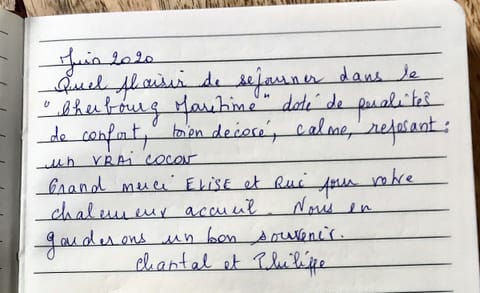 Juin 2020
Quel plaisir de séjourner dans le
"Cherbourg Maritime" doté de qualités
de confort, bien décoré, calme, reposant :
un VRAI COCON
Grand merci ELISE et pour votre
chaleureux accueil. Nous en
garderons un bon souvenir.
Chantal et Philippe